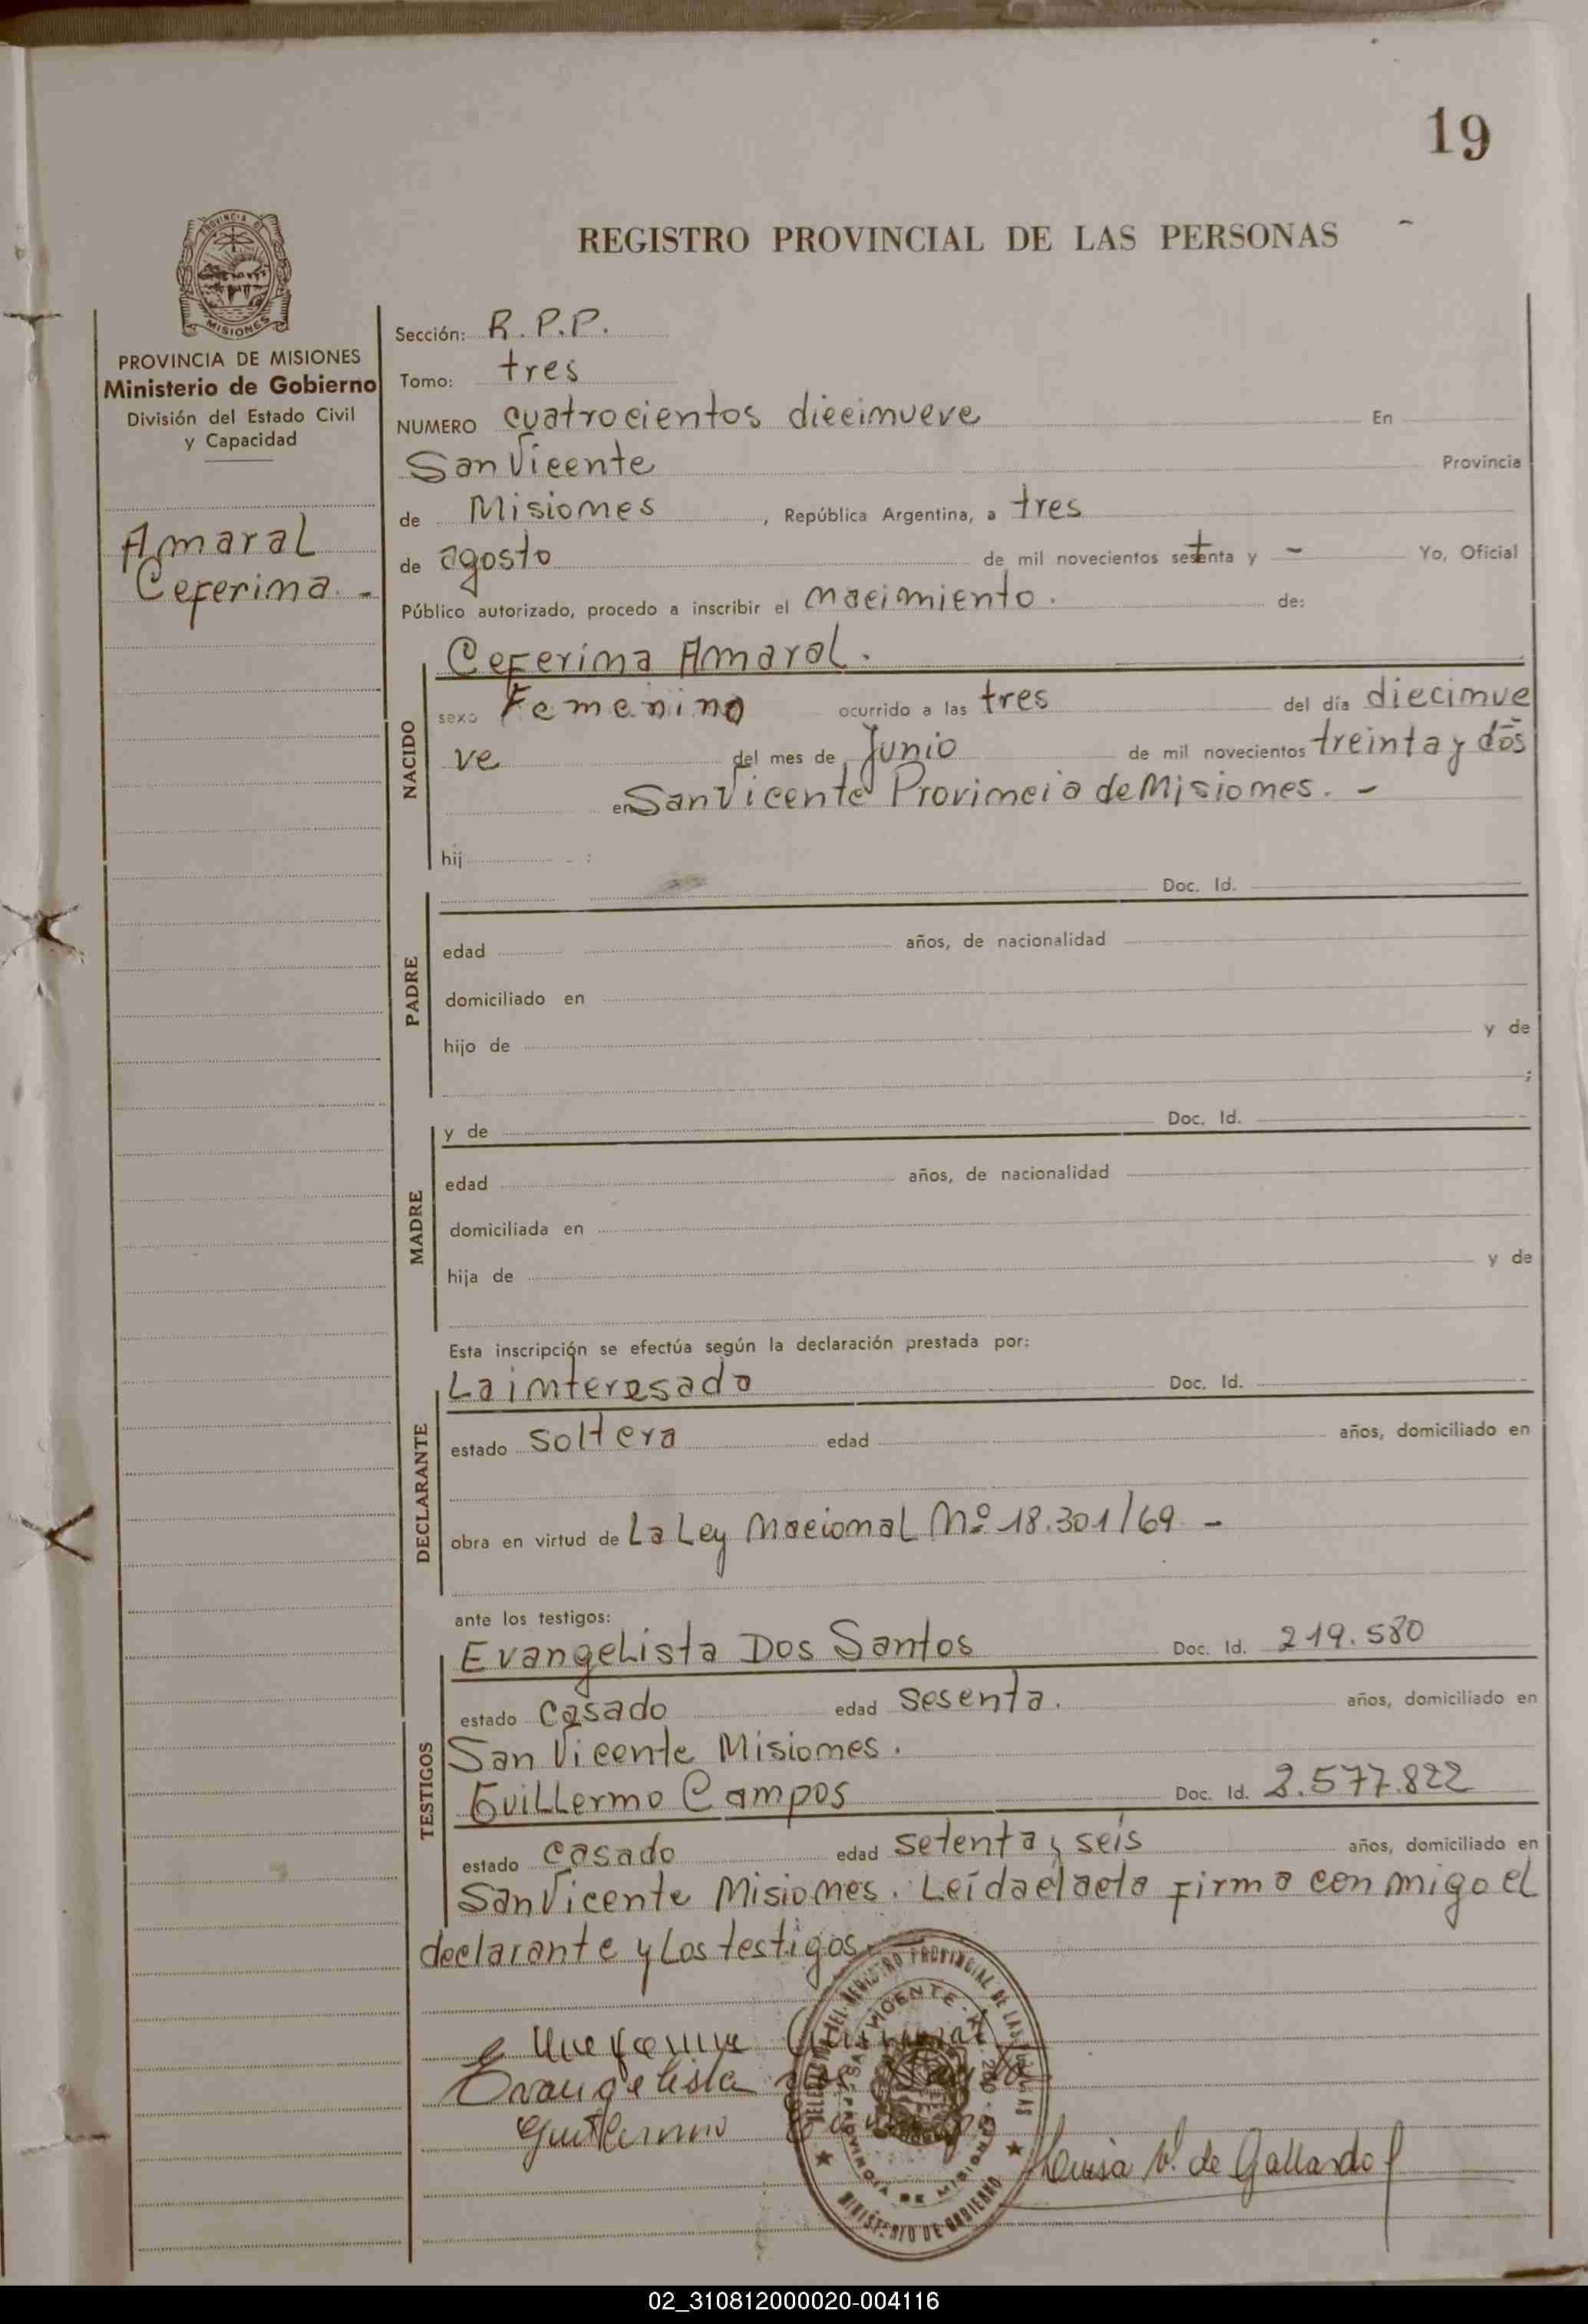 19
REGISTRO PROVINCIAL DE LAS PERSONAS
PROVINCIA DE
MISIONES
PROVINCIA DE MISIONES
Ministerio de Gobierno
División del Estado Civil
y Capacidad
Amaral
Ceferina. -
Sección: R. P. P.
Tomo: tres
NUMERO cuatrocientos diecinueve En
San Vicente Provincia
de Misiones, República Argentina, a tres
de agosto de mil novecientos setenta y - Yo, Oficial
Público autorizado, procedo a inscribir el nacimiento. de:
NACIDO
Ceferina Amaral.
sexo Femenino ocurrido a las tres del día diecinue
ve del mes de Junio de mil novecientos treinta y dos
en San Vicente Provincia de Misiones. -
hij
PADRE
Doc. Id.
edad años, de nacionalidad
domiciliado en
hijo de y de
;
MADRE
y de Doc. Id.
edad años, de nacionalidad
domiciliada en
hija de y de
Esta inscripción se efectúa según la declaración prestada por:
DECLARANTE
La interesada Doc. Id.
estado soltera edad años, domiciliado en
obra en virtud de La Ley Nacional Nº 18.301/69 -
ante los testigos:
TESTIGOS
Evangelista Dos Santos Doc. Id. 219.580
estado casado edad sesenta. años, domiciliado en
San Vicente Misiones.
Guillermo Campos Doc. Id. 2.577.822
estado casado edad setenta y seis años, domiciliado en
San Vicente Misiones. Leída el acta firma conmigo el
declarante y Los testigos.
Evangelista dos
Guillermo
Luisa V. de Gallardo
SAN VICENTE
PROVINCIA DE MISIONES
MINISTERIO DE GOBIERNO
02_310812000020-004116